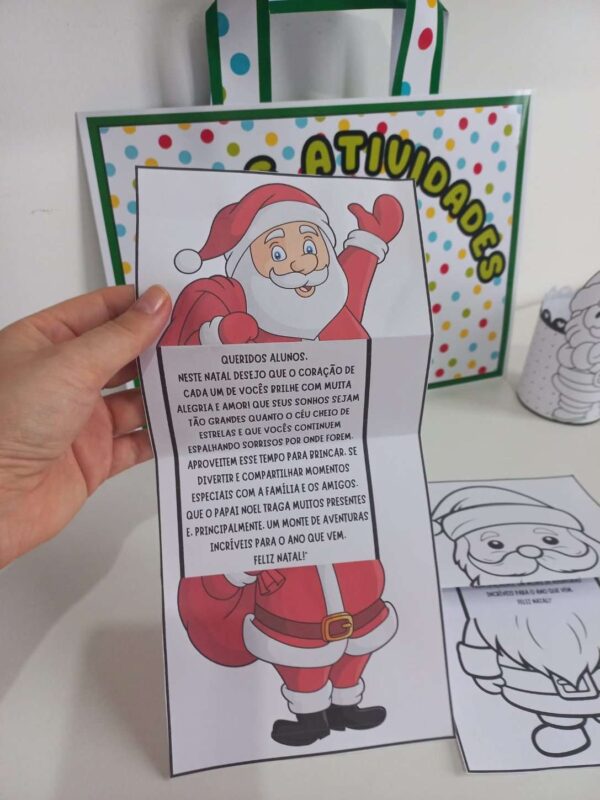 ATIVIDADES
QUERIDOS ALUNOS,
NESTE NATAL DESEJO QUE O CORAÇÃO DE
CADA UM DE VOCÊS BRILHE COM MUITA
ALEGRIA E AMOR! QUE SEUS SONHOS SEJAM
TÃO GRANDES QUANTO O CÉU CHEIO DE
ESTRELAS E QUE VOCÊS CONTINUEM
ESPALHANDO SORRISOS POR ONDE FOREM.
APROVEITEM ESSE TEMPO PARA BRINCAR, SE
DIVERTIR E COMPARTILHAR MOMENTOS
ESPECIAIS COM A FAMÍLIA E OS AMIGOS.
QUE O PAPAI NOEL TRAGA MUITOS PRESENTES
E, PRINCIPALMENTE, UM MONTE DE AVENTURAS
INCRÍVEIS PARA O ANO QUE VEM.
FELIZ NATAL!"
INCRÍVEIS PARA O ANO QUE VEM.
FELIZ NATAL!"